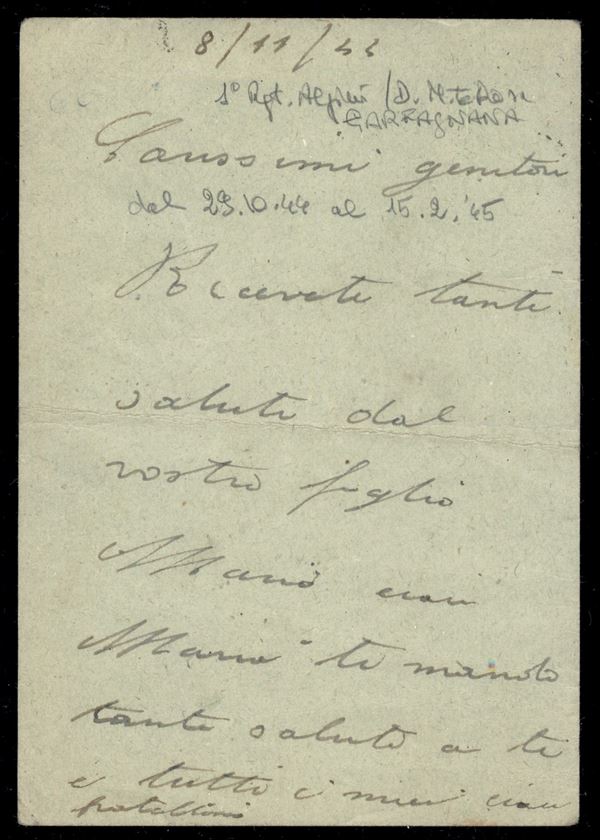 8/11/44
1° Rgt. Alpini / D. M.te Rosa
GARFAGNANA
Carissimi genitori
dal 29.10.44 al 15.2.'45
Ricevete tanti
saluti dal
vostro figlio
Mario ciau
Maria ti mando
tanti saluti a te
e tutti i miei ciau
fratellini